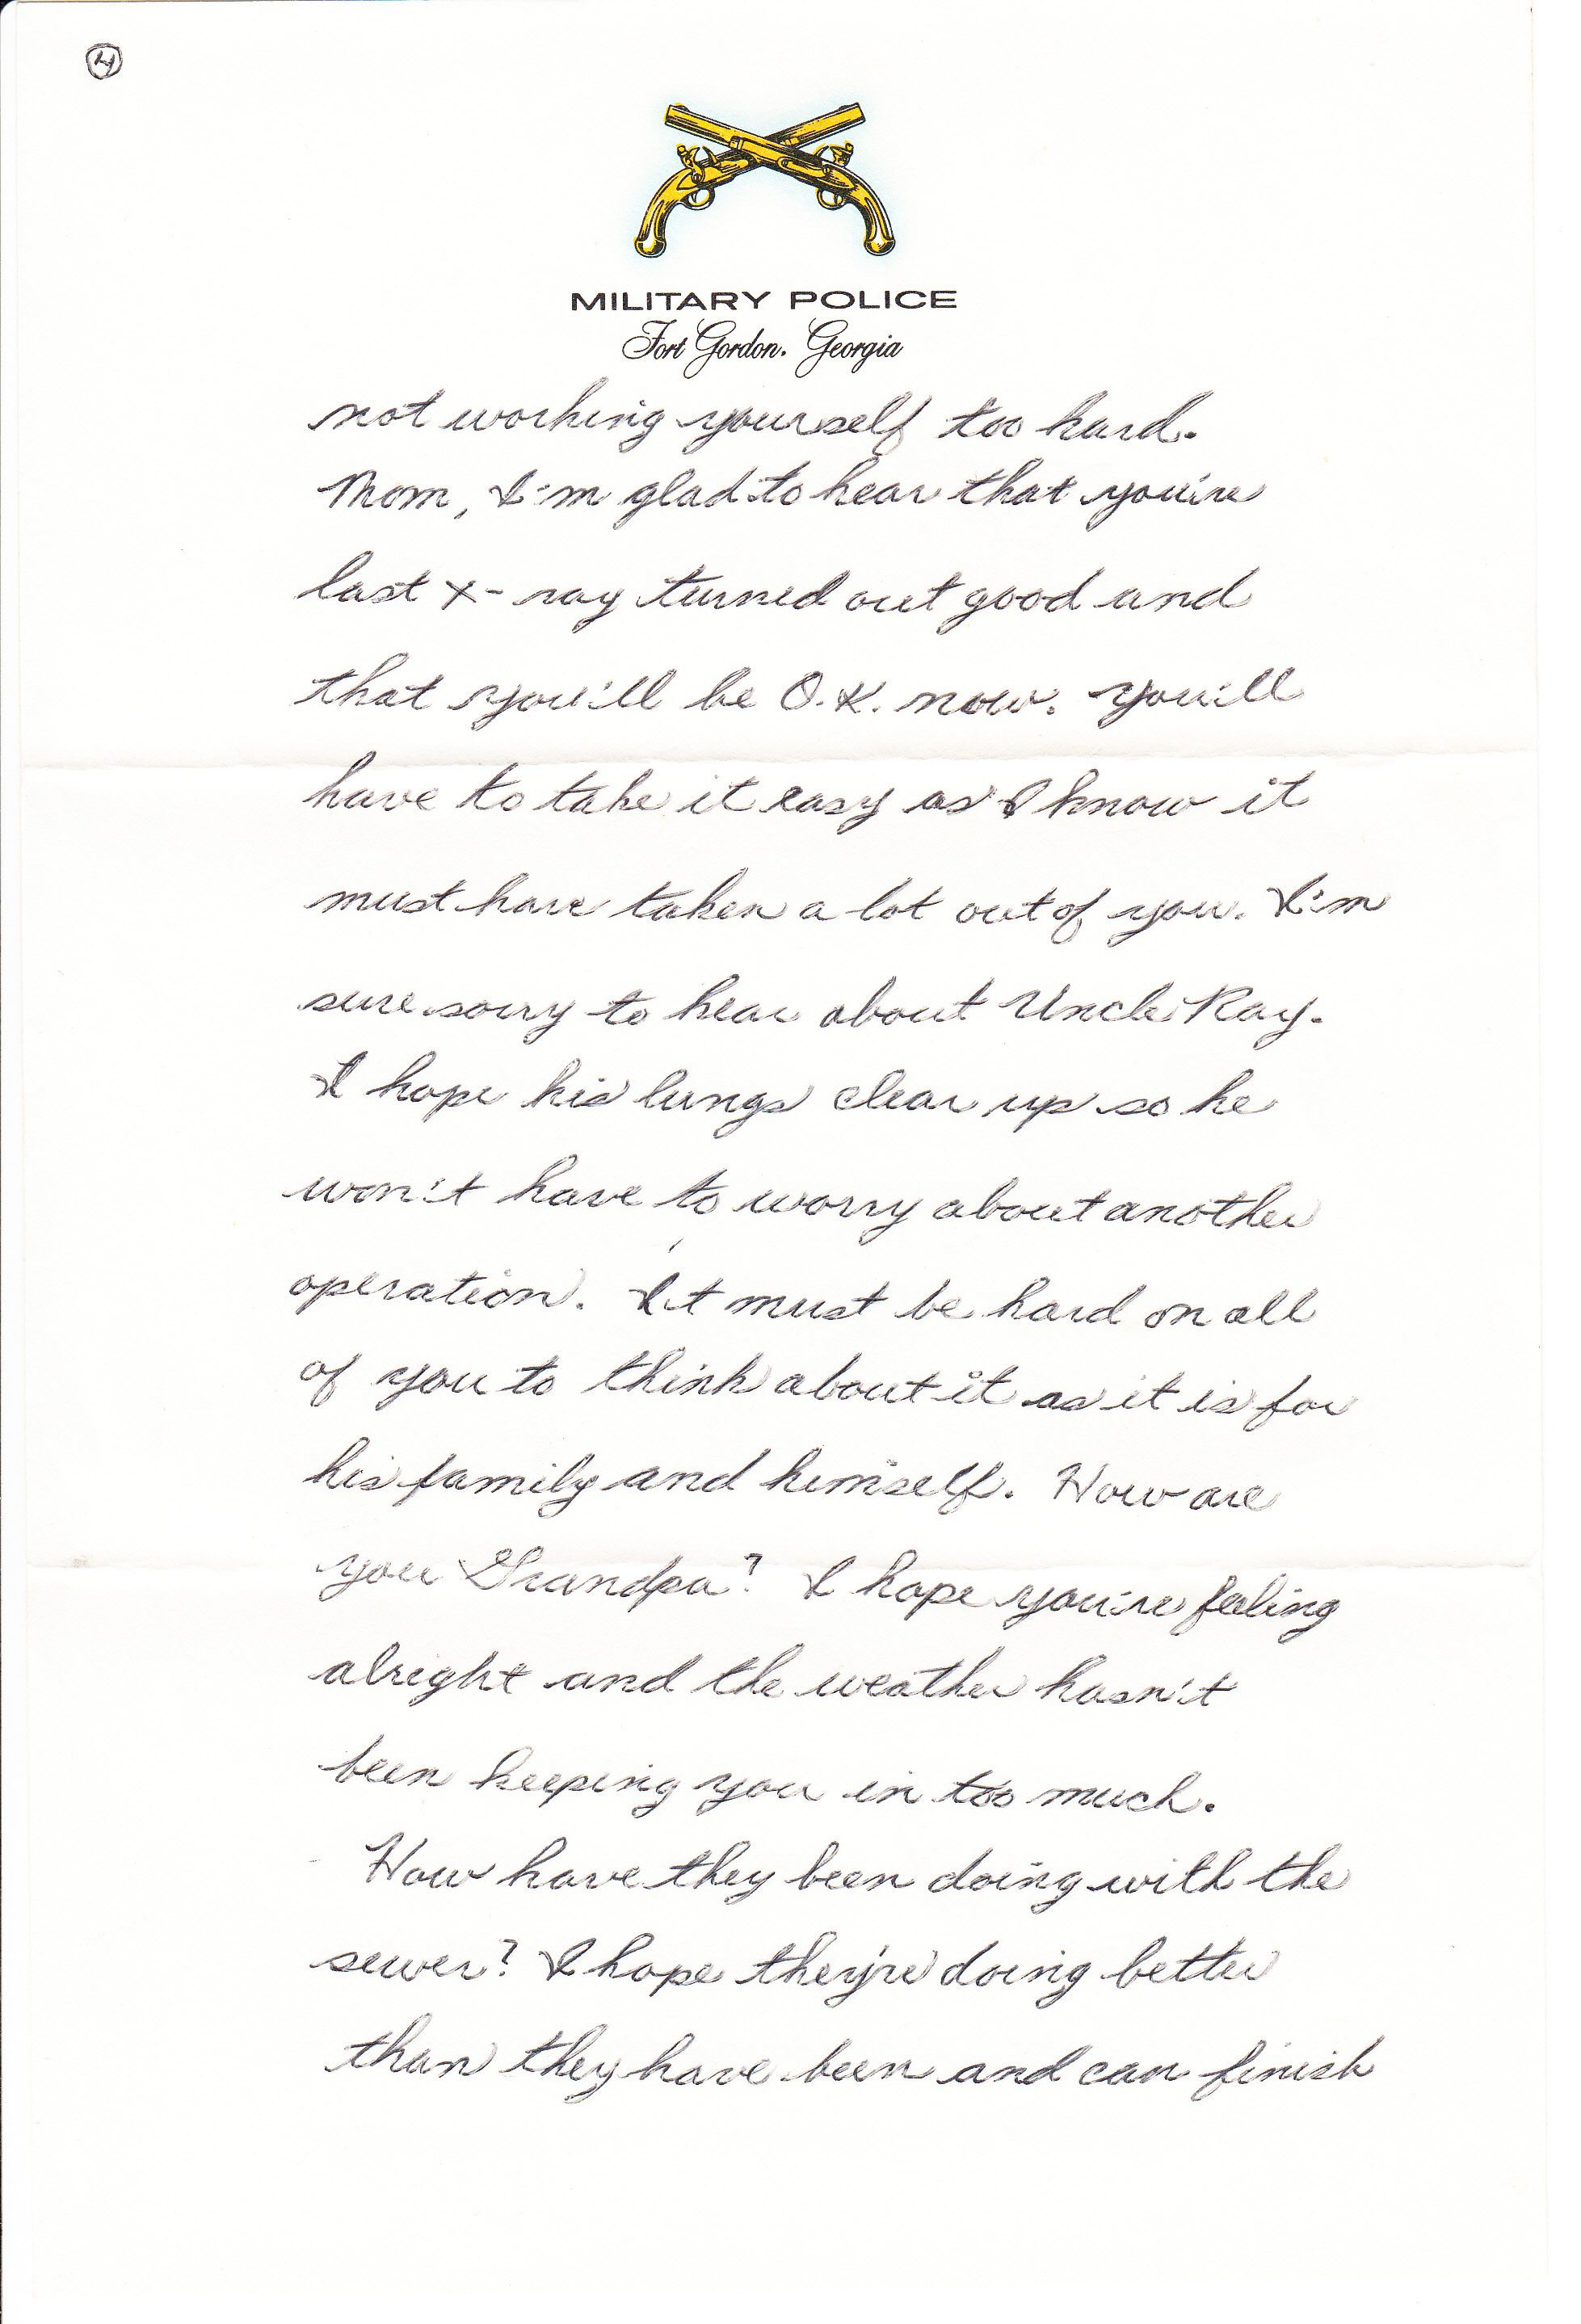 4
MILITARY POLICE
Fort Gordon, Georgia
not working yourself too hard.
Mom, I'm glad to hear that you're
last x-ray turned out good and
that you'll be O.K. now. You'll
have to take it easy as I know it
must have taken a lot out of you. I'm
sure sorry to hear about Uncle Ray.
I hope his lungs clear up so he
won't have to worry about another
operation. It must be hard on all
of you to think about it as it is for
his family and himself. How are
you Grandpa? I hope you're feeling
alright and the weather hasn't
been keeping you in too much.
How have they been doing with the
sewer? I hope they're doing better
than they have been and can finish